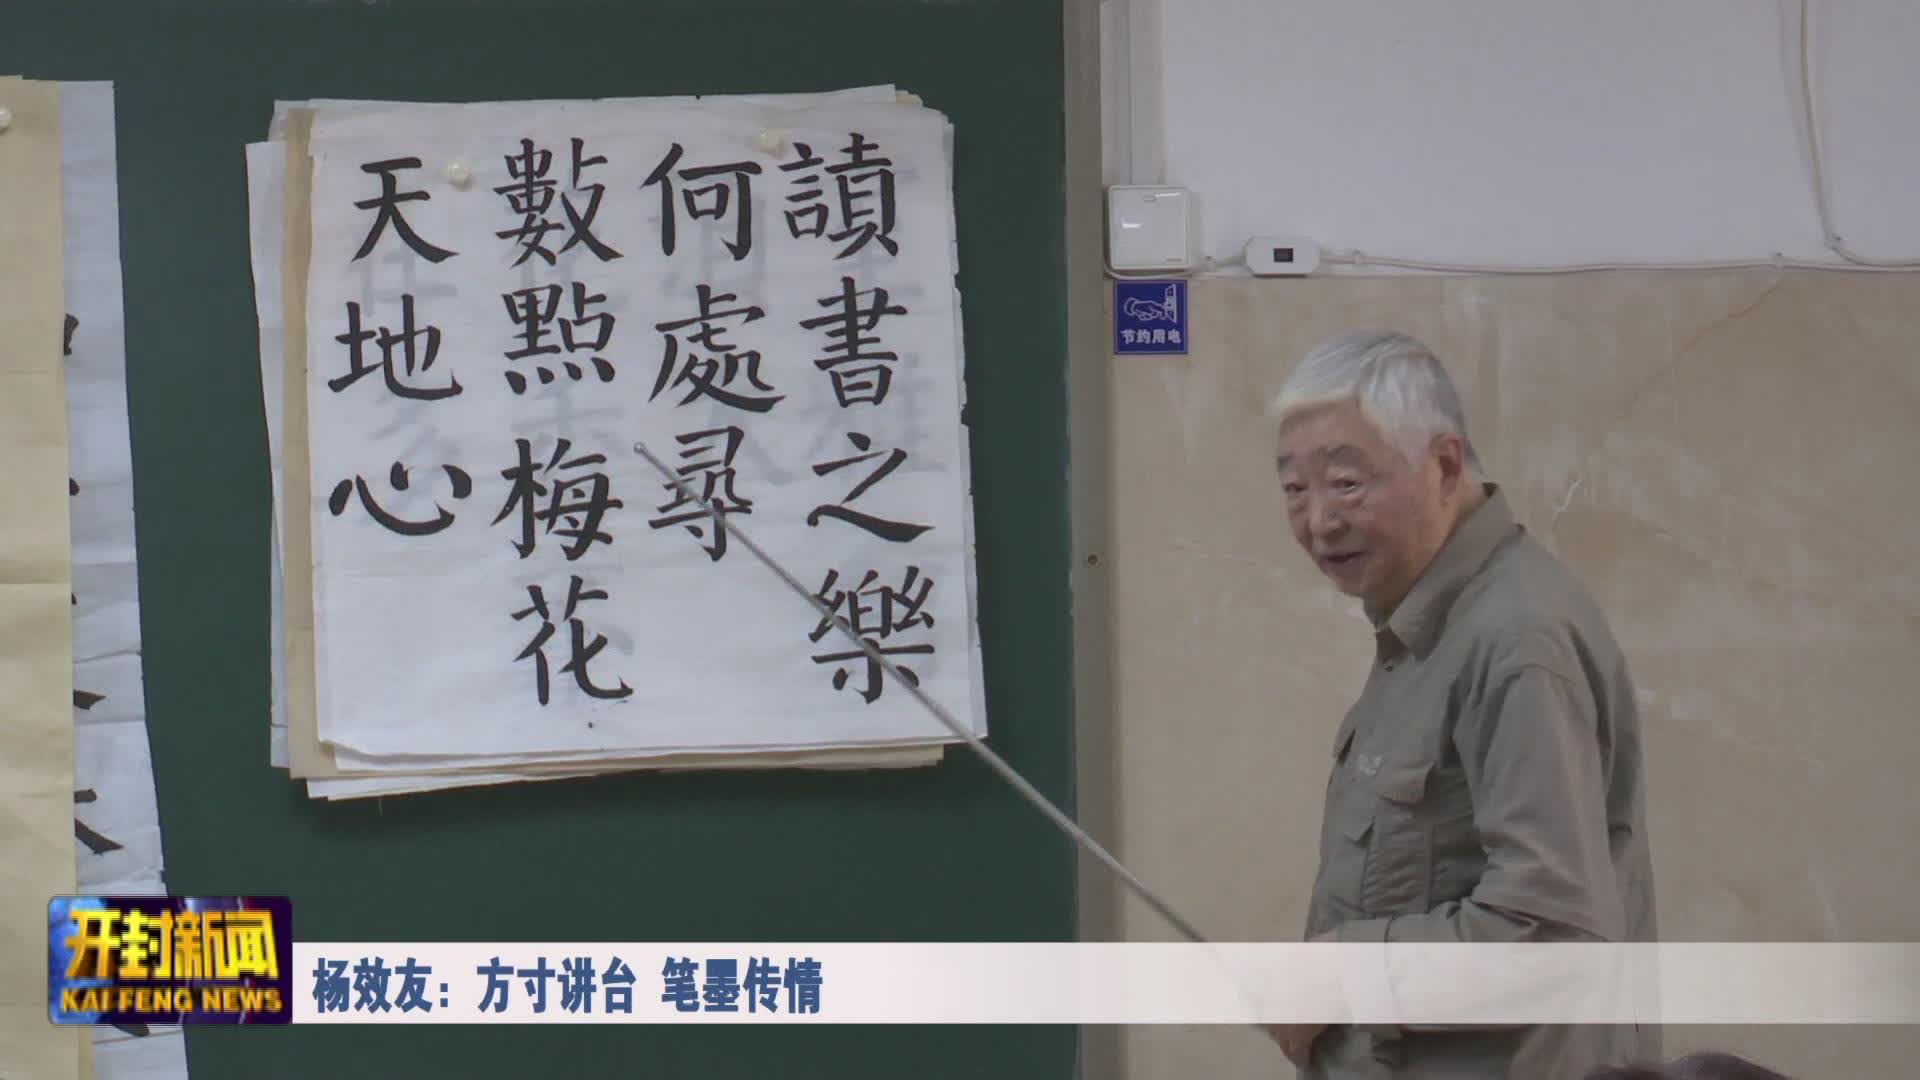 讀書之樂
何處尋
數點梅花
天地心
节约用电
开封新闻
KAI FENG NEWS
杨效友：方寸讲台 笔墨传情